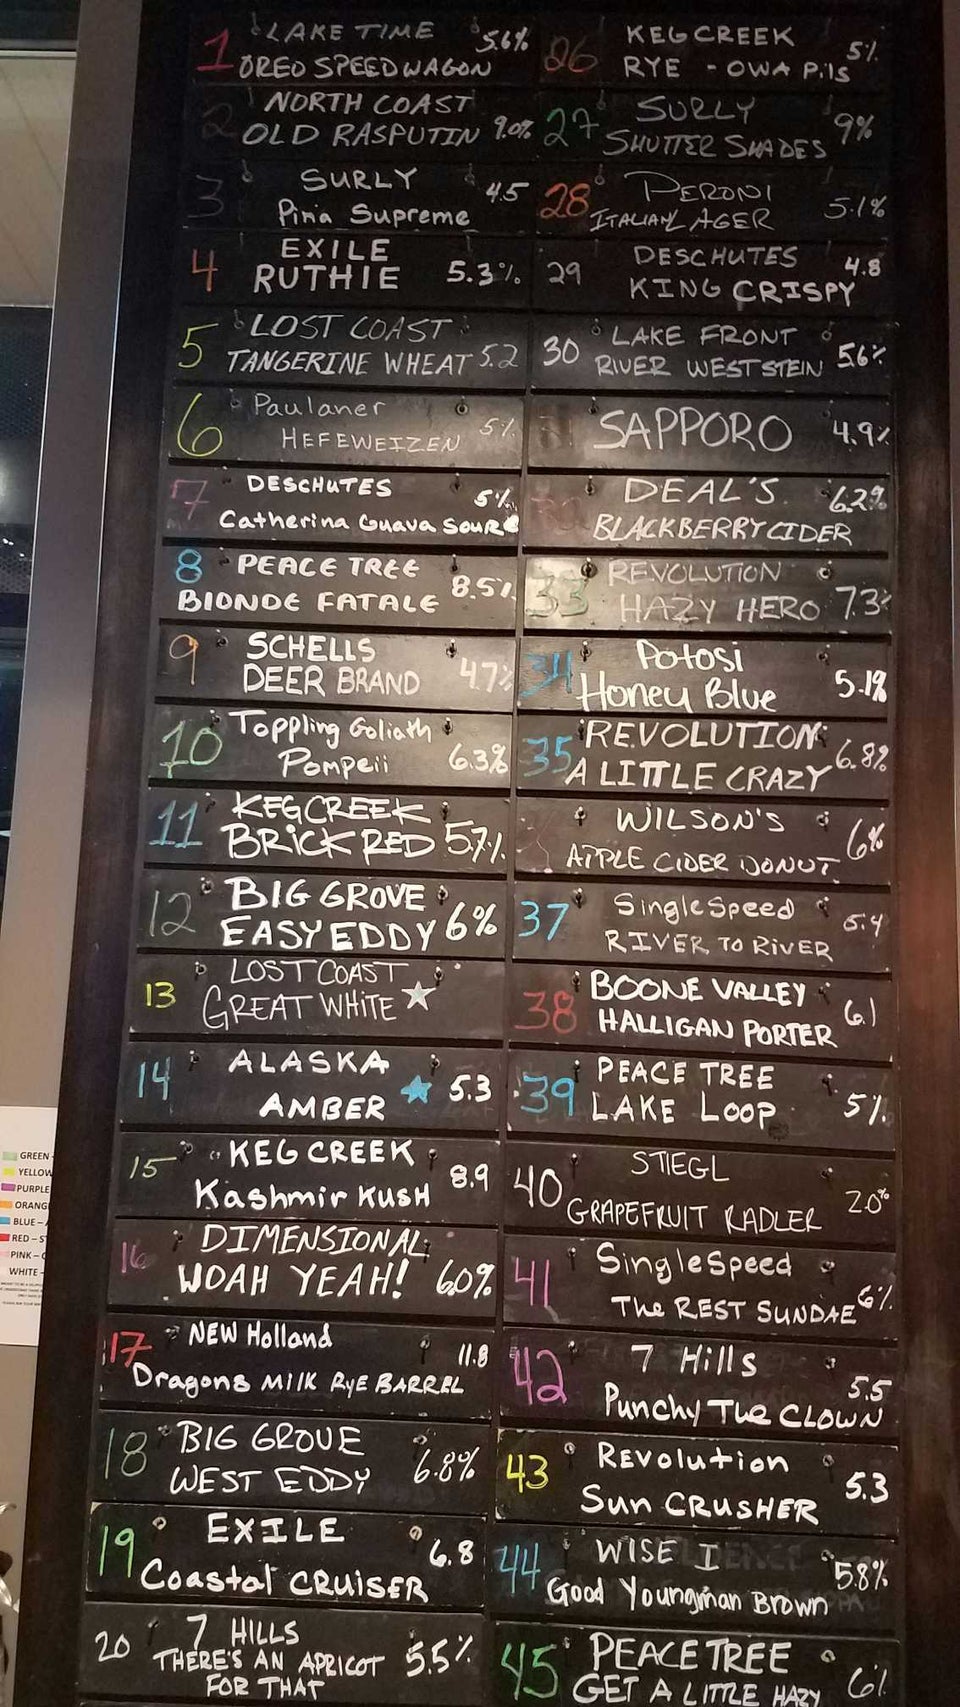 1 LAKE TIME 5.6%
OREO SPEEDWAGON
2 NORTH COAST
OLD RASPUTIN 9.0%
3 SURLY 4.5
Pina Supreme
4 EXILE
RUTHIE 5.3%
5 LOST COAST
TANGERINE WHEAT 5.2
6 Paulaner 5%
HEFEWEIZEN
7 DESCHUTES 5%
Catherina Guava SOUR
8 PEACE TREE 8.5%
BlONDE FATALE
9 SCHELLS 4.7%
DEER BRAND
10 Toppling Goliath
Pompeii 6.3%
11 KEG CREEK
BRICK RED 5.7%
12 BIG GROVE
EASY EDDY 6%
13 LOST COAST
GREAT WHITE
14 ALASKA 5.3
AMBER
15 KEG CREEK 8.9
Kashmir KUSH
16 DIMENSIONAL
WOAH YEAH! 6.0%
17 NEW Holland 11.8
Dragons MILK RYE BARREL
18 BIG GROVE 6.8%
WEST EDDY
19 EXILE 6.8
Coastal CRUISER
20 7 HILLS 5.5%
THERE'S AN APRICOT
FOR THAT
26 KEG CREEK 5%
RYE - OWA PilS
27 SURLY 9%
SHUTTER SHADES
28 PERONI 5.1%
ITALIAN LAGER
29 DESCHUTES 4.8
KING CRISPY
30 LAKE FRONT 5.6%
RIVER WEST STEIN
SAPPORO 4.9%
32 DEAL'S 6.2%
BLACKBERRY CIDER
33 REVOLUTION
HAZY HERO 7.3%
34 Potosi 5.1%
Honey Blue
35 REVOLUTION 6.8%
A LITTLE CRAZY
WILSON'S 6%
APPLE CIDER DONUT
37 SingleSpeed 5.4
RIVER TO RIVER
38 BOONE VALLEY 6.1
HALLIGAN PORTER
39 PEACE TREE 5%
LAKE LOOP
40 STIEGL 2.0%
GRAPEFRUIT RADLER
41 SingleSpeed 6%
The REST SUNDAE
42 7 Hills 5.5
Punchy The CLOWN
43 Revolution 5.3
Sun CRUSHER
44 WISE I 5.8%
Good Youngman Brown
45 PEACE TREE 6%
GET A LITTLE HAZY
GREEN
YELLOW
PURPLE
ORANG
BLUE – A
RED – S
PINK –
WHITE –